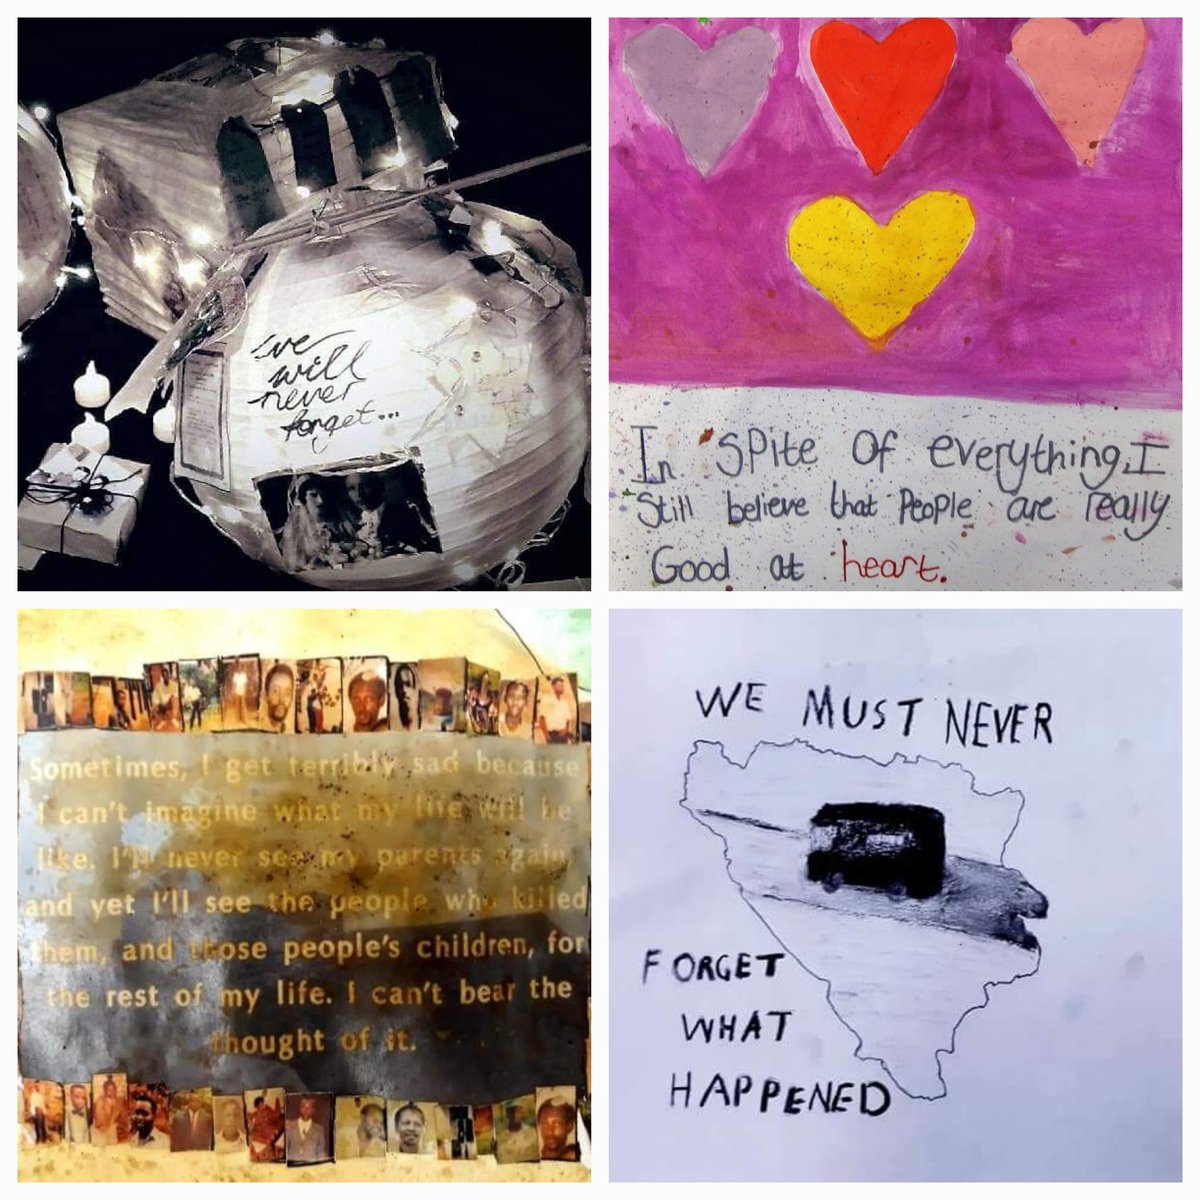 we
will
never
forget...
In spite of everything, I
Still believe that People are really
Good at heart.
Sometimes, I get terribly sad because
I can't imagine what my life will be
like. I'll never see my parents again,
and yet I'll see the people who killed
them, and those people's children, for
the rest of my life. I can't bear the
thought of it.
WE MUST NEVER
FORGET
WHAT
HAPPENED